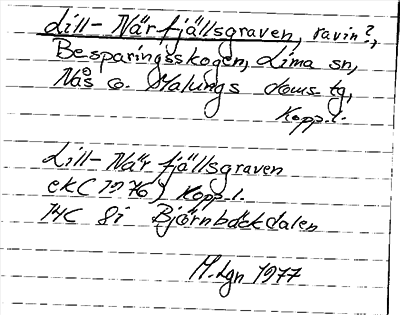 Lill-Närfjällsgraven, ravin?,
Besparingsskogen, Lima sn,
Nås o. Malungs doms tg,
Kopp. l.
Lill-Närfjällsgraven
ekC 1976) Kopp. l.
14C 8i Björnbäckdalen
M. Lgn 1977